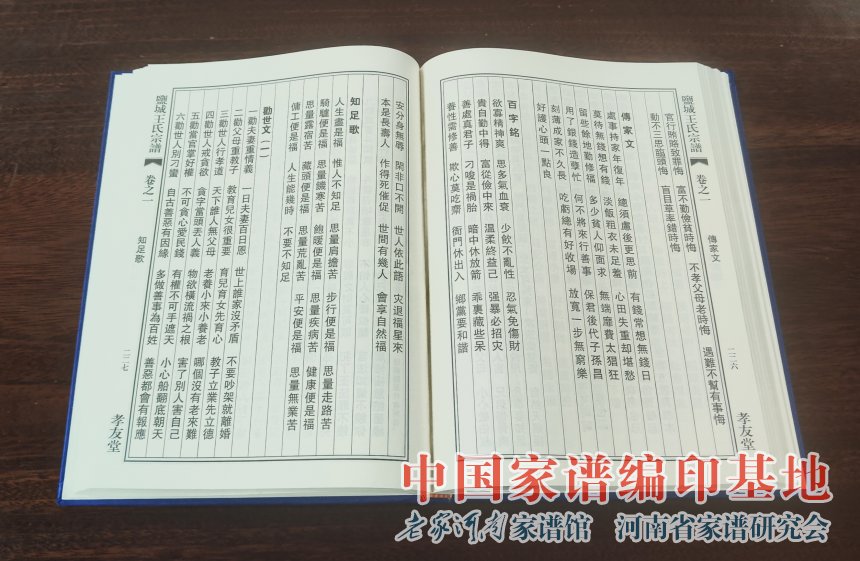 鹽城王氏宗譜
卷之一
傳家文
一二六
孝友堂
官行賄賂致罪悔 富不勤儉貧時悔 不孝父母老時悔 遇難不幫有事悔
動不三思臨頭悔 盲目草率錯時悔
傳家文
處事持家年復年 總須慮後更思前 有錢常想無錢日
莫待無錢想有錢 淡飯粗衣未足羞 心田失重却堪愁
留些餘地勤修福 多少貧人仰面求 無端靡費太猖狂
用了銀錢造孽忙 何不將來行善事 保君後代子孫昌
刻薄成家不久長 吃虧總有好收場 放寬一步無窮樂
好護心頭一點良
百字銘
欲寡精神爽 思多氣血衰 少飲不亂性 忍氣免傷財
貴自勤中得 富從儉中來 溫柔終益己 强暴必招灾
善處真君子 刁唆是禍胎 暗中休放箭 乖裏藏些呆
養性需修善 欺心莫吃齋 衙門休出入 鄉黨要和諧
安分身無辱 閑非口不開 世人依此語 灾退福星來
本是長壽人 作得死催促 世間有幾人 會享自然福
知足歌
人生盡是福 惟人不知足 思量肩擔苦 步行便是福 思量走路苦
騎驢便是福 思量饑寒苦 飽暖便是福 思量疾病苦 健康便是福
思量露宿苦 藏頭便是福 思量荒亂苦 平安便是福 思量無業苦
傭工便是福 人生能幾時 不要不知足
勸世文（一）
一勸夫妻重情義 一日夫妻百日恩 世上誰家沒矛盾 不要吵架就離婚
二勸父母重教子 教育兒女很重要 育兒育女先育心 教子立業先立德
三勸世人行孝道 天下誰人無父母 老養小來小養老 哪個沒有老來難
四勸世人戒貪欲 貪字當頭丟人義 物欲橫流禍之根 害了別人害自己
五勸當官掌好權 不可貪心愛民錢 有權不可手遮天 小心船翻底朝天
六勸世人別刁蠻 自古善惡有因緣 多做善事為百姓 善惡都會有報應
鹽城王氏宗譜
卷之一
知足歌
一二七
孝友堂
中国家谱编印基地
老家河南家谱馆 河南省家谱研究会